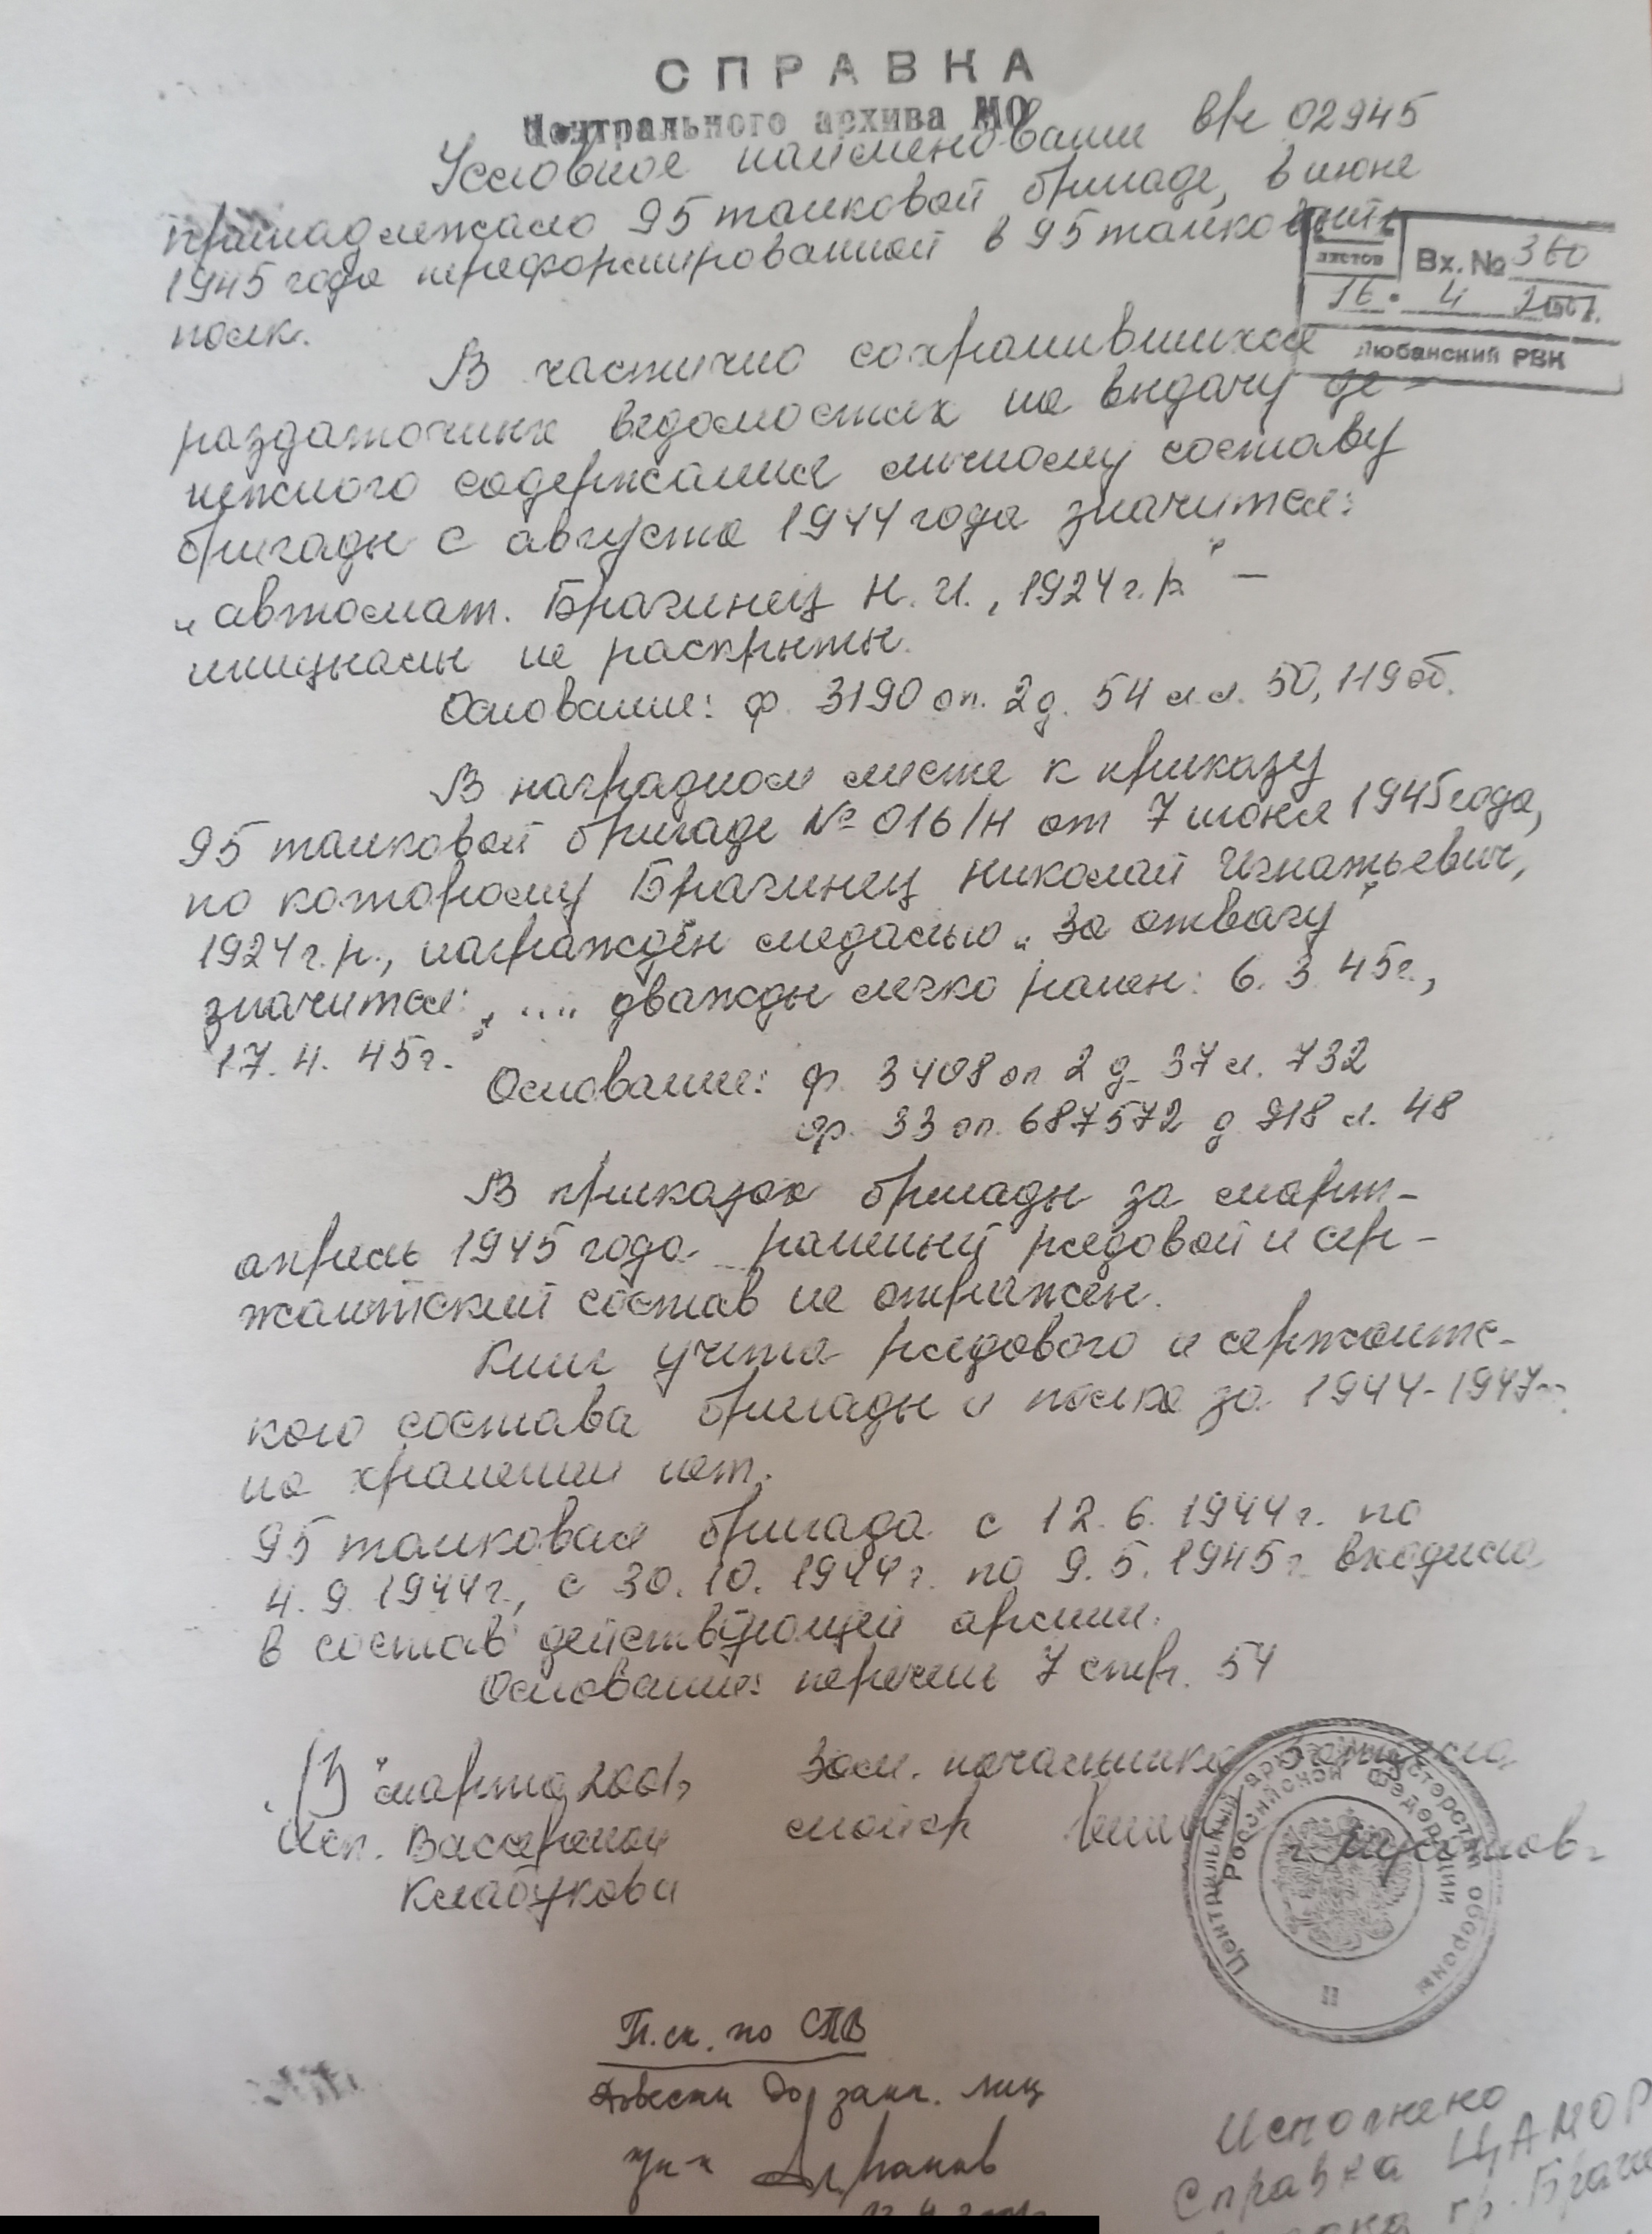 СПРАВКА
Центрального архива МО
Условное наименование в/ч 02945
принадлежало 95 танковой бригаде, в июне
1945 года переформированной в 95 танковый
полк.
листов
Вх. № 360
16. 4 2001.
Любанский РВК
В частично сохранившихся
раздаточных ведомостях на выдачу де-
нежного содержания личному составу
бригады с августа 1944 года значится:
„автомат. Брагинец Н. И., 1924 г.р." —
инициалы не раскрыты.
Основание: ф. 3190 оп. 2 д. 54 л.л. 50, 119 об.
В наградном листе к приказу
95 танковой бригаде № 016/н от 7 июня 1945 года,
по которому Брагинец Николай Игнатьевич,
1924 г.р., награждён медалью „За отвагу"
значится: „.... дважды легко ранен: 6. 3. 45г.,
17. 4. 45г."
Основание: ф. 3408 оп 2 д. 37 л. 732
ф. 33 оп. 687572 д 918 л. 48
В приказах бригады за март-
апрель 1945 года раненый рядовой и сер-
жантский состав не отражён.
Книг учета рядового и сержантс-
кого состава бригады и полка за 1944-1947гг.
на хранении нет.
95 танковая бригада с 12. 6. 1944 г. по
4. 9. 1944г., с 30. 10. 1944 г. по 9. 5. 1945г. входила
в состав действующей армии.
Основание: перечень 7 стр. 54
„13" марта 2001г
Зам. начальника отдела
Исп. Васеренон
майор
Кладукова
Центральный архив Министерства обороны
Российской Федерации
П.ск. по СПВ
Довести до заин. лиц
Исполнено
Справка ЦАМО Р
гр. Браги